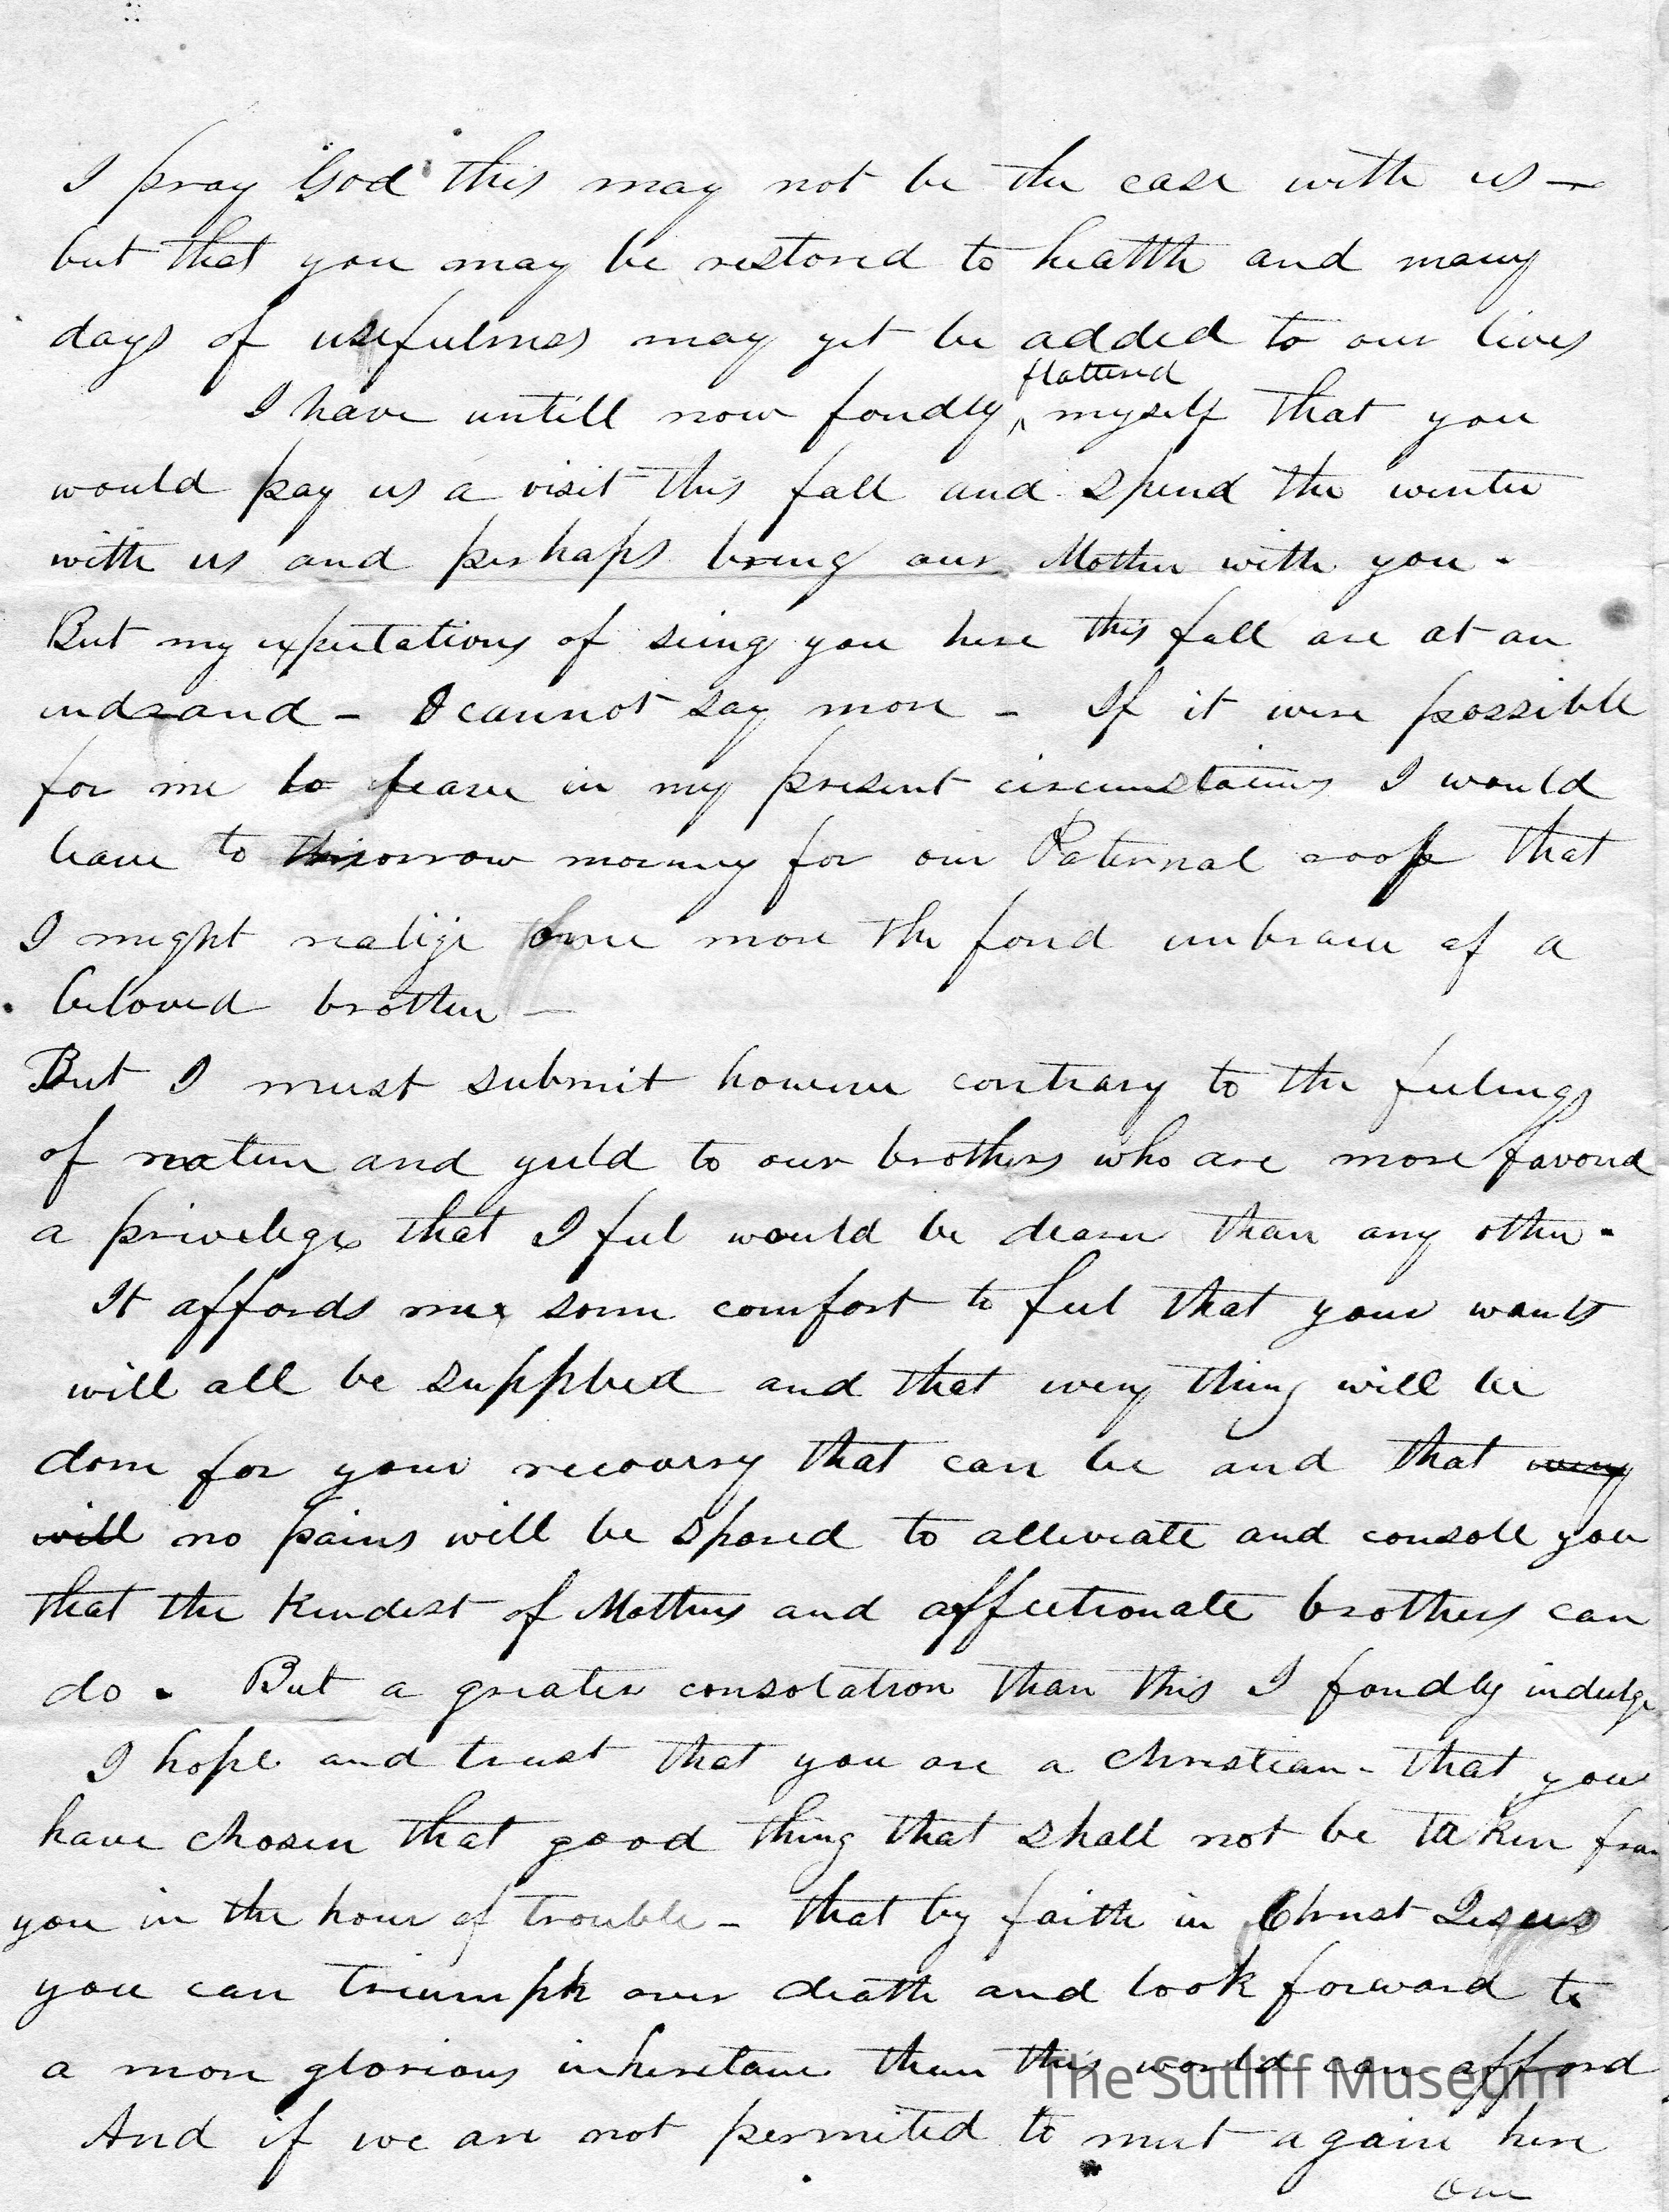 I pray God this may not be the case with us —
but that you may be restored to health and many
days of usefulness may yet be added to our lives
flattered
I have untill now fondly ^ myself that you
would pay us a visit this fall and spend the winter
with us and perhaps bring our Mother with you -
But my expectations of seeing you here this fall are at an
end and - I cannot say more - If it were possible
for me to leave in my present circumstances I would
leave to morrow morning for our Paternal roof that
I might realize once more the fond embrace of a
beloved brother —
But I must submit however contrary to the feelings
of nature and yield to our brothers who are more favord
a privelege that I feel would be dearer than any other -
It affords me some comfort to feel that your wants
will all be supplied and that every thing will be
done for your recovery that can be and that every
will no pains will be spared to alleviate and consoll you
that the kindest of Mothers and affectionate brothers can
do . But a greater consolation than this I fondly indulge
I hope and trust that you are a Christian - that you
have chosen that good thing that shall not be taken from
you in the hour of trouble - that by faith in Christ Jesus
you can triumph over death and look forward to
a more glorious inheritance than this world can afford
And if we are not permited to meet again here
our
The Sutliff Museum